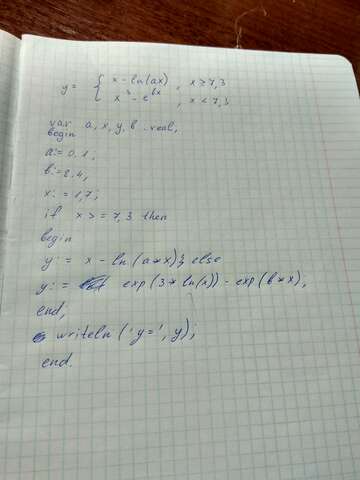 y = { x - ln(ax) , x ≥ 7,3
x³ - e^bx , x < 7,3
var a, x, y, b : real;
begin
a:= 0,1;
b:= 2,4;
x:= 1,7;
if x >= 7,3 then
begin
y:= x - ln(a*x); else
y:= exp(3* ln(x)) - exp(b*x);
end;
writeln ('y=', y);
end.